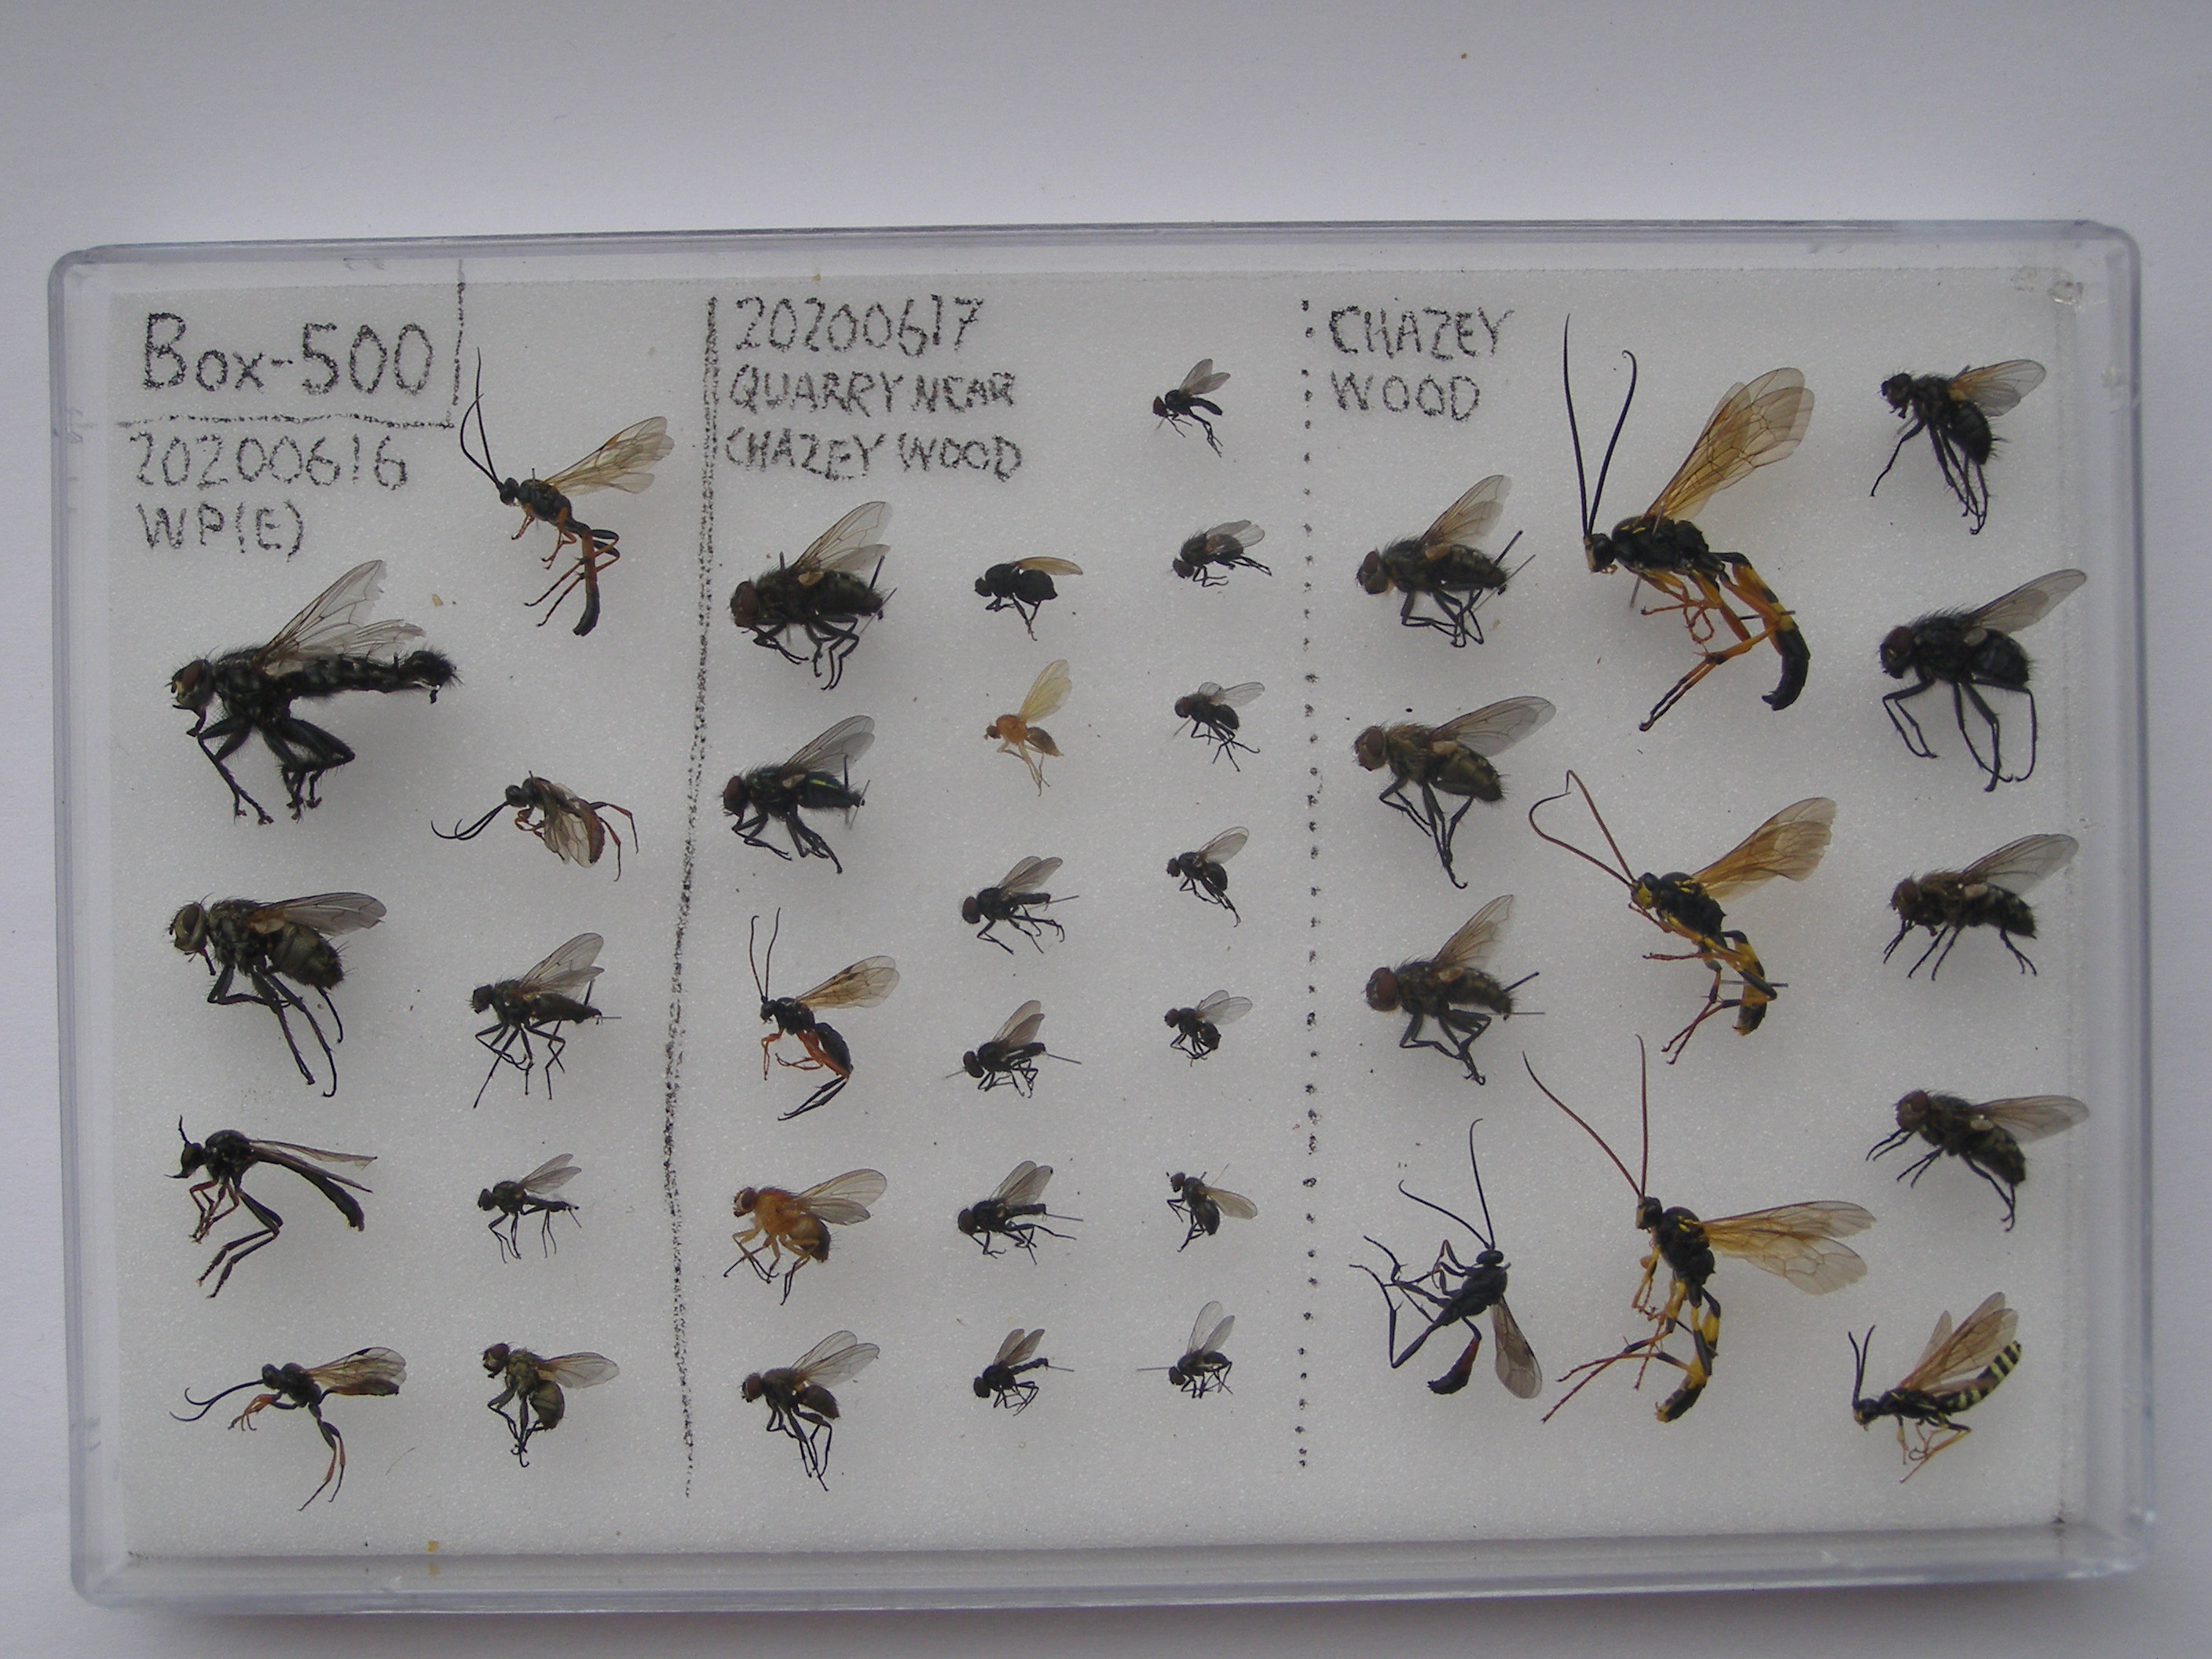 Box-500
20200616
WP(E)
20200617
QUARRY NEAR
CHAZEY WOOD
CHAZEY
WOOD